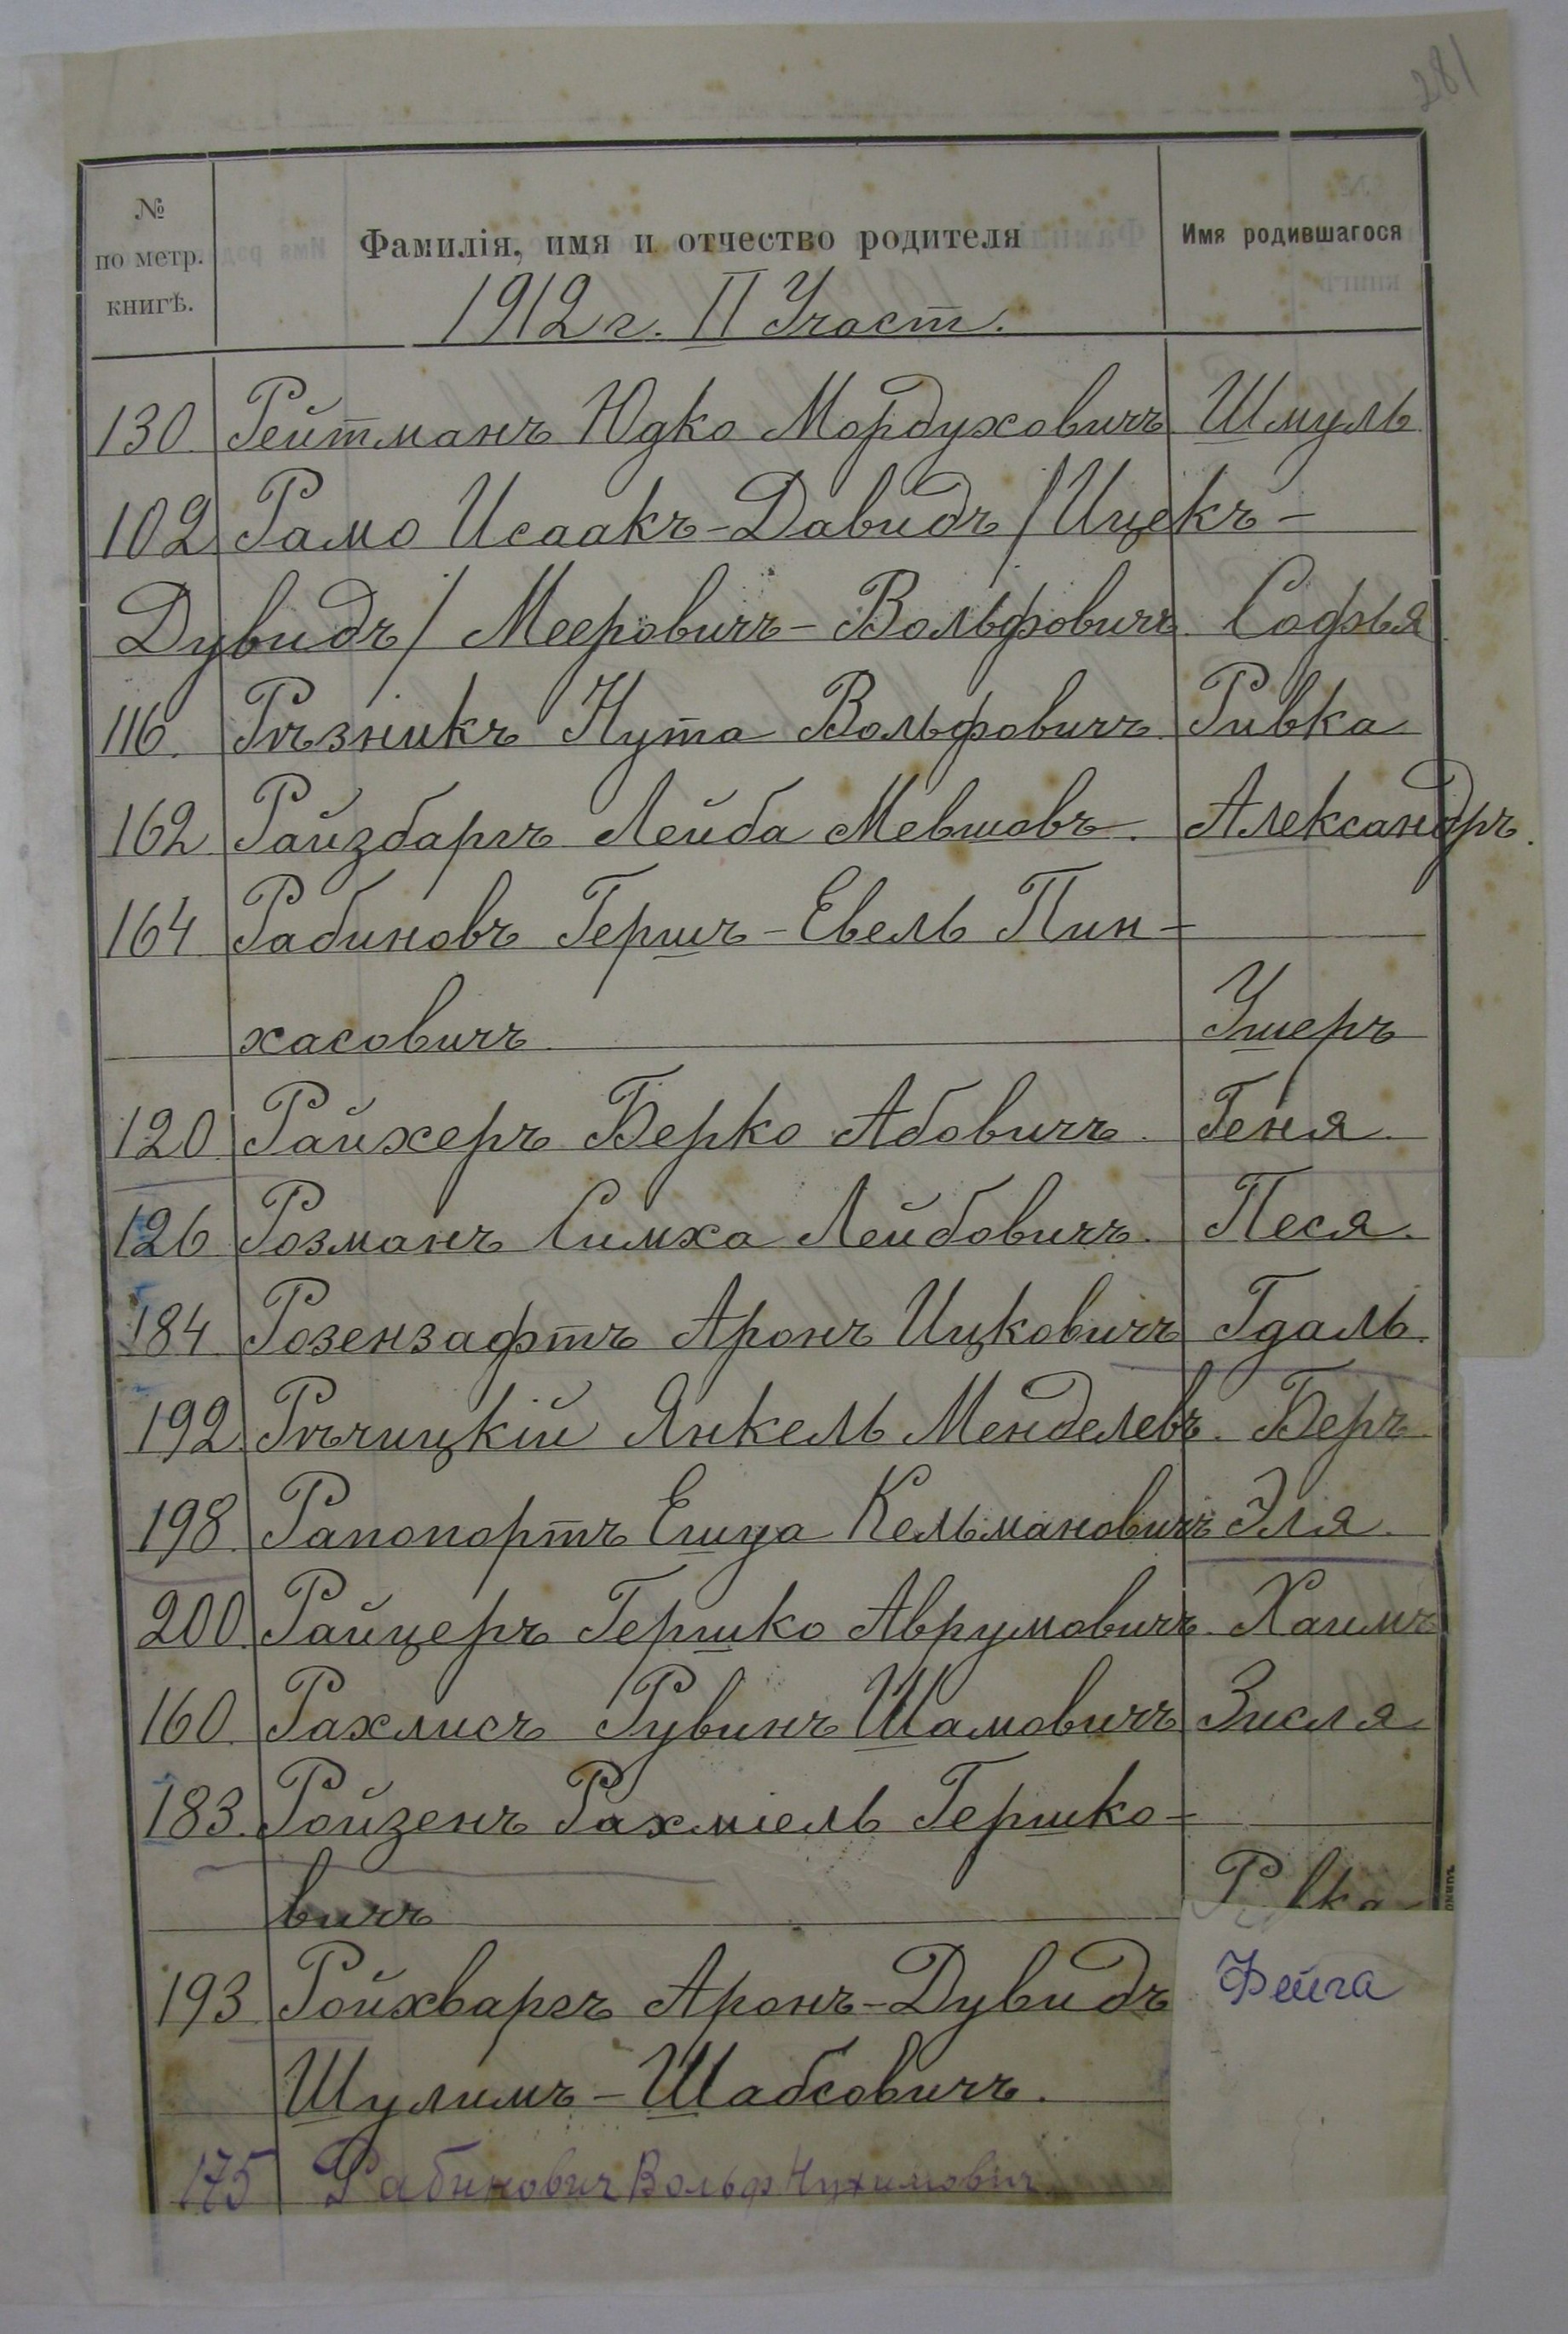 281
№ по метр. книгѣ.
Фамилія, имя и отчество родителя
Имя родившагося
1912 г. II Участ.
130 Рейтманъ Юдко Мордуховичъ Шмуль
102 Рамо Исаакъ-Давидъ /Ицекъ-
Дувидъ/ Мееровичъ-Вольфовичъ Софья
116. Рѣзникъ Нута Вольфовичъ. Ривка
162 Райзбаргъ Лейба Мевшовъ. Александръ.
164 Рабиновъ Гершъ-Евель Пин-
хасовичъ Ушеръ
120 Райхеръ Берко Абовичъ. Геня.
126 Розманъ Симха Лейбовичъ. Песя.
184 Розензафтъ Аронъ Ицковичъ Гдаль.
192 Рѣчицкій Янкель Менделевъ. Беръ.
198. Рапопортъ Егшуа Кельмановичъ Эля.
200. Райцеръ Гершко Аврумовичъ. Хаимъ
160. Рахлисъ Рувинъ Шамовичъ Зисля
183. Ройзенъ Рахміель Гершко-
вичъ Ривка
193 Ройхваргъ Аронъ-Дувидъ Фейга
Шулимъ-Шабсовичъ.
175 Рабинович Вольф Нухимович